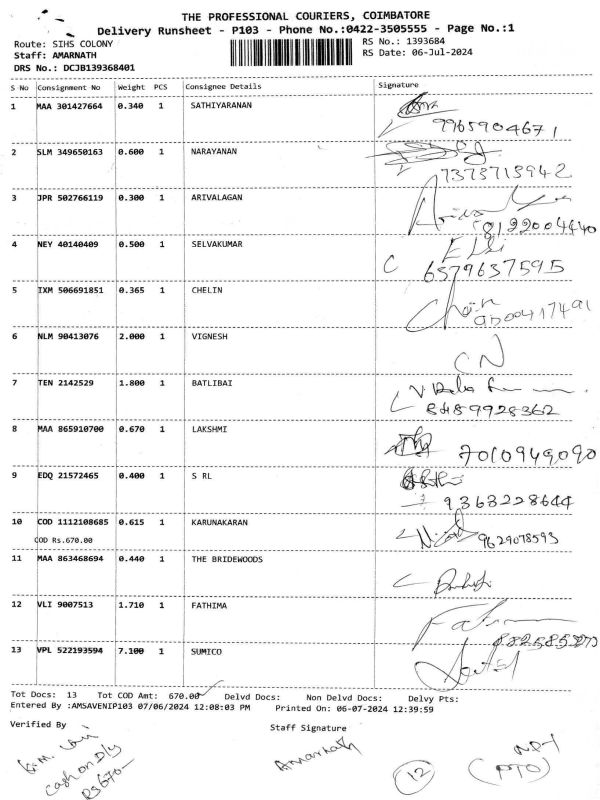 THE PROFESSIONAL COURIERS, COIMBATORE
Delivery Runsheet - P103 - Phone No.:0422-3505555 - Page No.:1
Route: SIHS COLONY
RS No.: 1393684
Staff: AMARNATH
RS Date: 06-Jul-2024
DRS No.: DCJB139368401
S No Consignment No Weight PCS Consignee Details Signature
1 MAA 301427664 0.340 1 SATHIYARANAN
9965904671
2 SLM 349650163 0.600 1 NARAYANAN
7373713942
3 JPR 502766119 0.300 1 ARIVALAGAN
8122004440
4 NEY 40140409 0.500 1 SELVAKUMAR
6579637595
5 IXM 506691851 0.365 1 CHELIN
9500417491
6 NLM 90413076 2.000 1 VIGNESH
CN
7 TEN 2142529 1.800 1 BATLIBAI
8489928362
8 MAA 865910700 0.670 1 LAKSHMI
7010949090
9 EDQ 21572465 0.400 1 S RL
9363228644
10 COD 1112108685 0.615 1 KARUNAKARAN
COD Rs.670.00
9629078593
11 MAA 863468694 0.440 1 THE BRIDEWOODS
12 VLI 9007513 1.710 1 FATHIMA
13 VPL 522193594 7.100 1 SUMICO
Tot Docs: 13 Tot COD Amt: 670.00 Delvd Docs: Non Delvd Docs: Delvy Pts:
Entered By :AMSAVENIP103 07/06/2024 12:08:03 PM Printed On: 06-07-2024 12:39:59
Verified By
Staff Signature
Amarnath
Cash on Dly
RS 670-
12
(PTO)